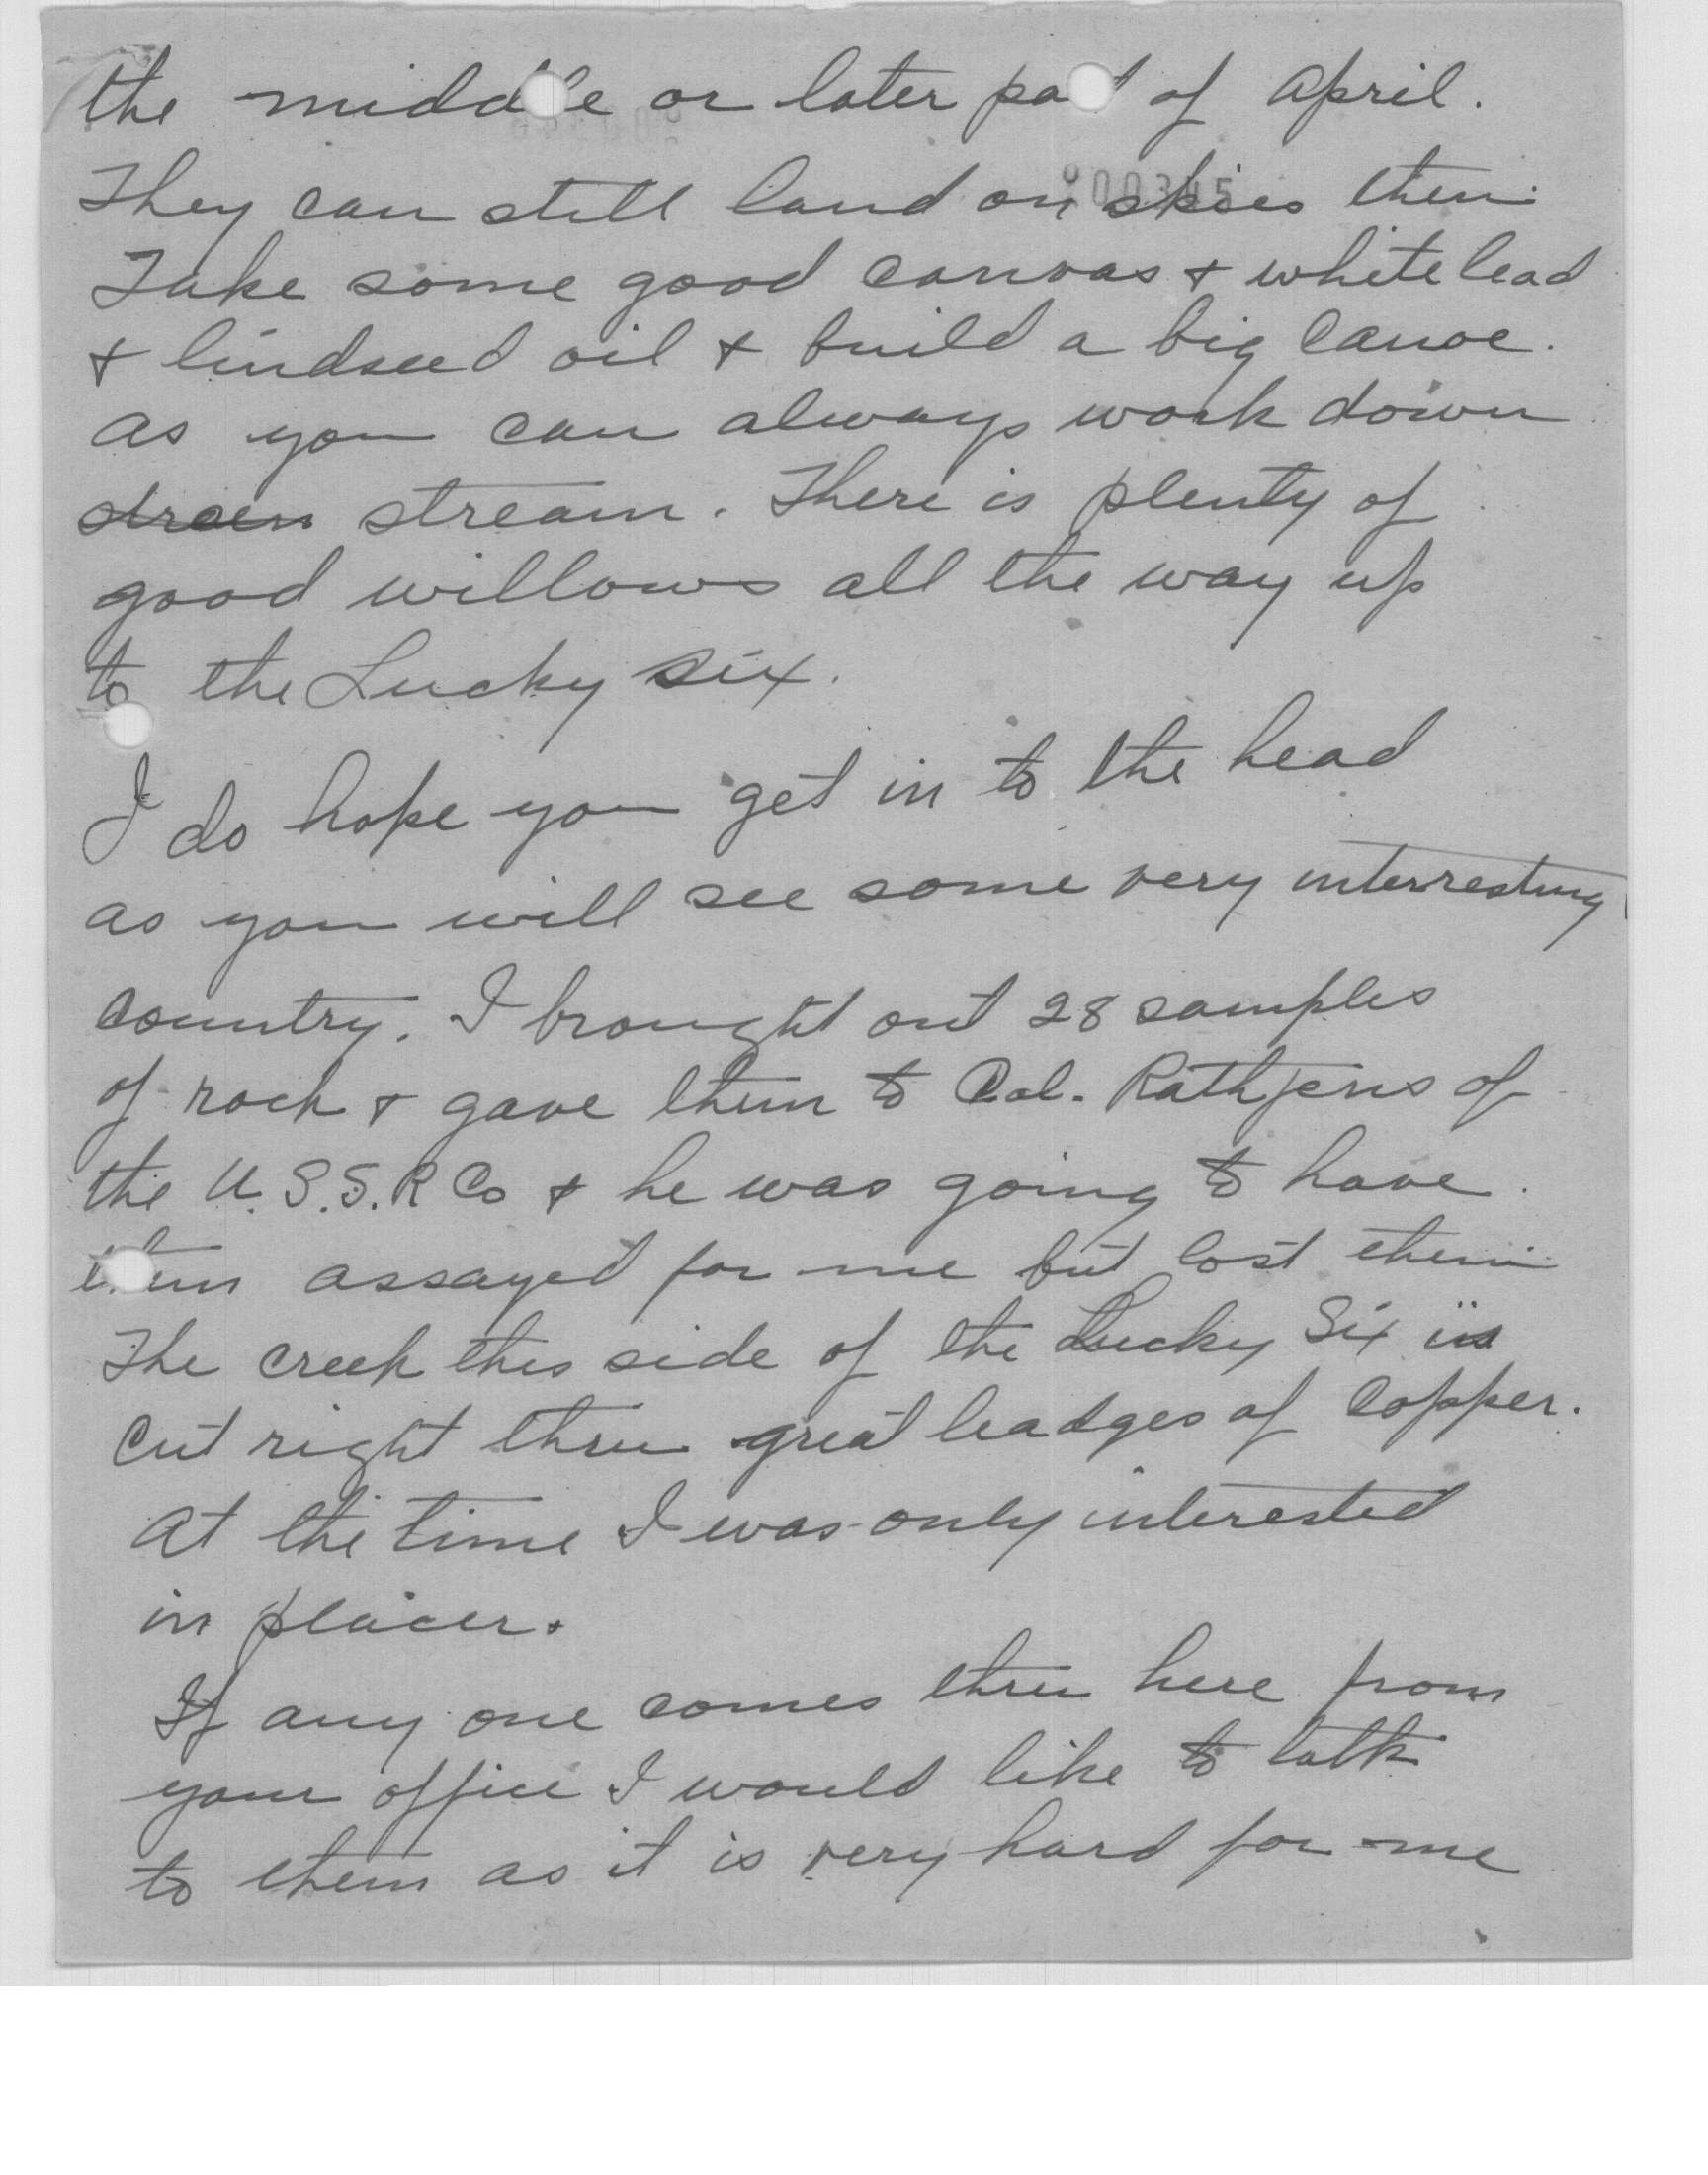 the middle or later part of April.
They can still land on skies then.
Take some good canvas & white lead
& lindseed oil & build a big canoe.
as you can always work down
stream. There is plenty of
good willows all the way up
to the Lucky six.
I do hope you get in to the head
as you will see some very interresting
country. I brought out 28 samples
of rock & gave them to Col. Rathjens of
the U.S.S.R Co & he was going to have
them assayed for me but lost them
The creek this side of the Lucky Six is
cut right thru great leadges of Copper.
At the time I was only interested
in placer.
If any one comes thru here from
your office I would like to talk
to them as it is very hard for me